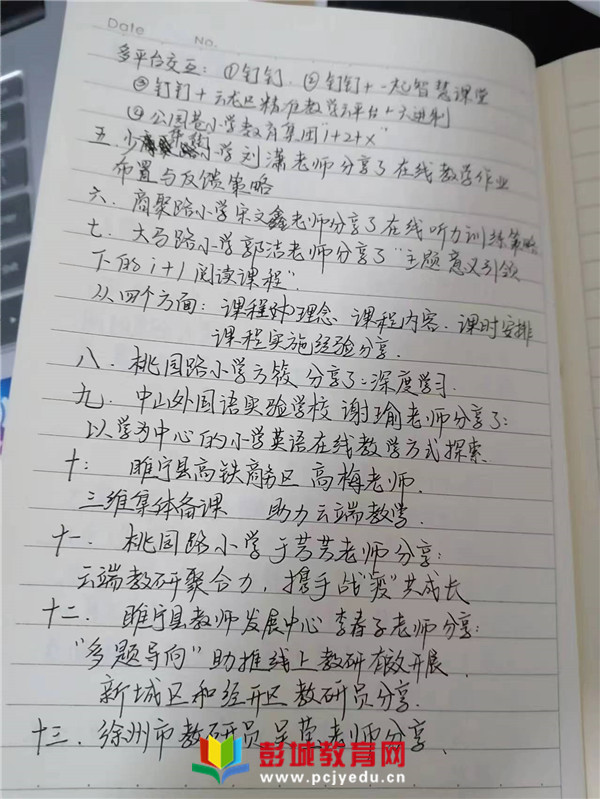 Date No.
多平台交互：①钉钉 ②钉钉+一起智慧课堂
③钉钉+云龙区精准教学云平台+大进制
④公园巷小学教育集团"1+2+x"
五 少华街小学刘潇老师分享了在线教学作业
布置与反馈策略
六. 商聚路小学宋文鑫老师分享了在线听力训练策略
七. 大马路小学郭洁老师分享了"主题意义引领
下的i+1阅读课程".
从四个方面：课程理念. 课程内容. 课时安排
课程实施经验分享.
八. 桃园路小学方筱 分享了：深度学习.
九. 中山外国语实验学校 谢瑜老师分享了：
以学为中心的小学英语在线教学方式探索.
十： 睢宁县高铁商务区 高梅老师.
三维集体备课 助力云端教学.
十一. 桃园路小学于芳芳老师分享：
云端教研聚合力，携手战"疫"共成长
十二. 睢宁县教师发展中心 李春子老师分享：
"多题导向"助推线上教研有效开展.
新城区和经开区教研员分享.
十三. 徐州市教研员 老师分享.
彭城教育网
www.pcjyedu.cn